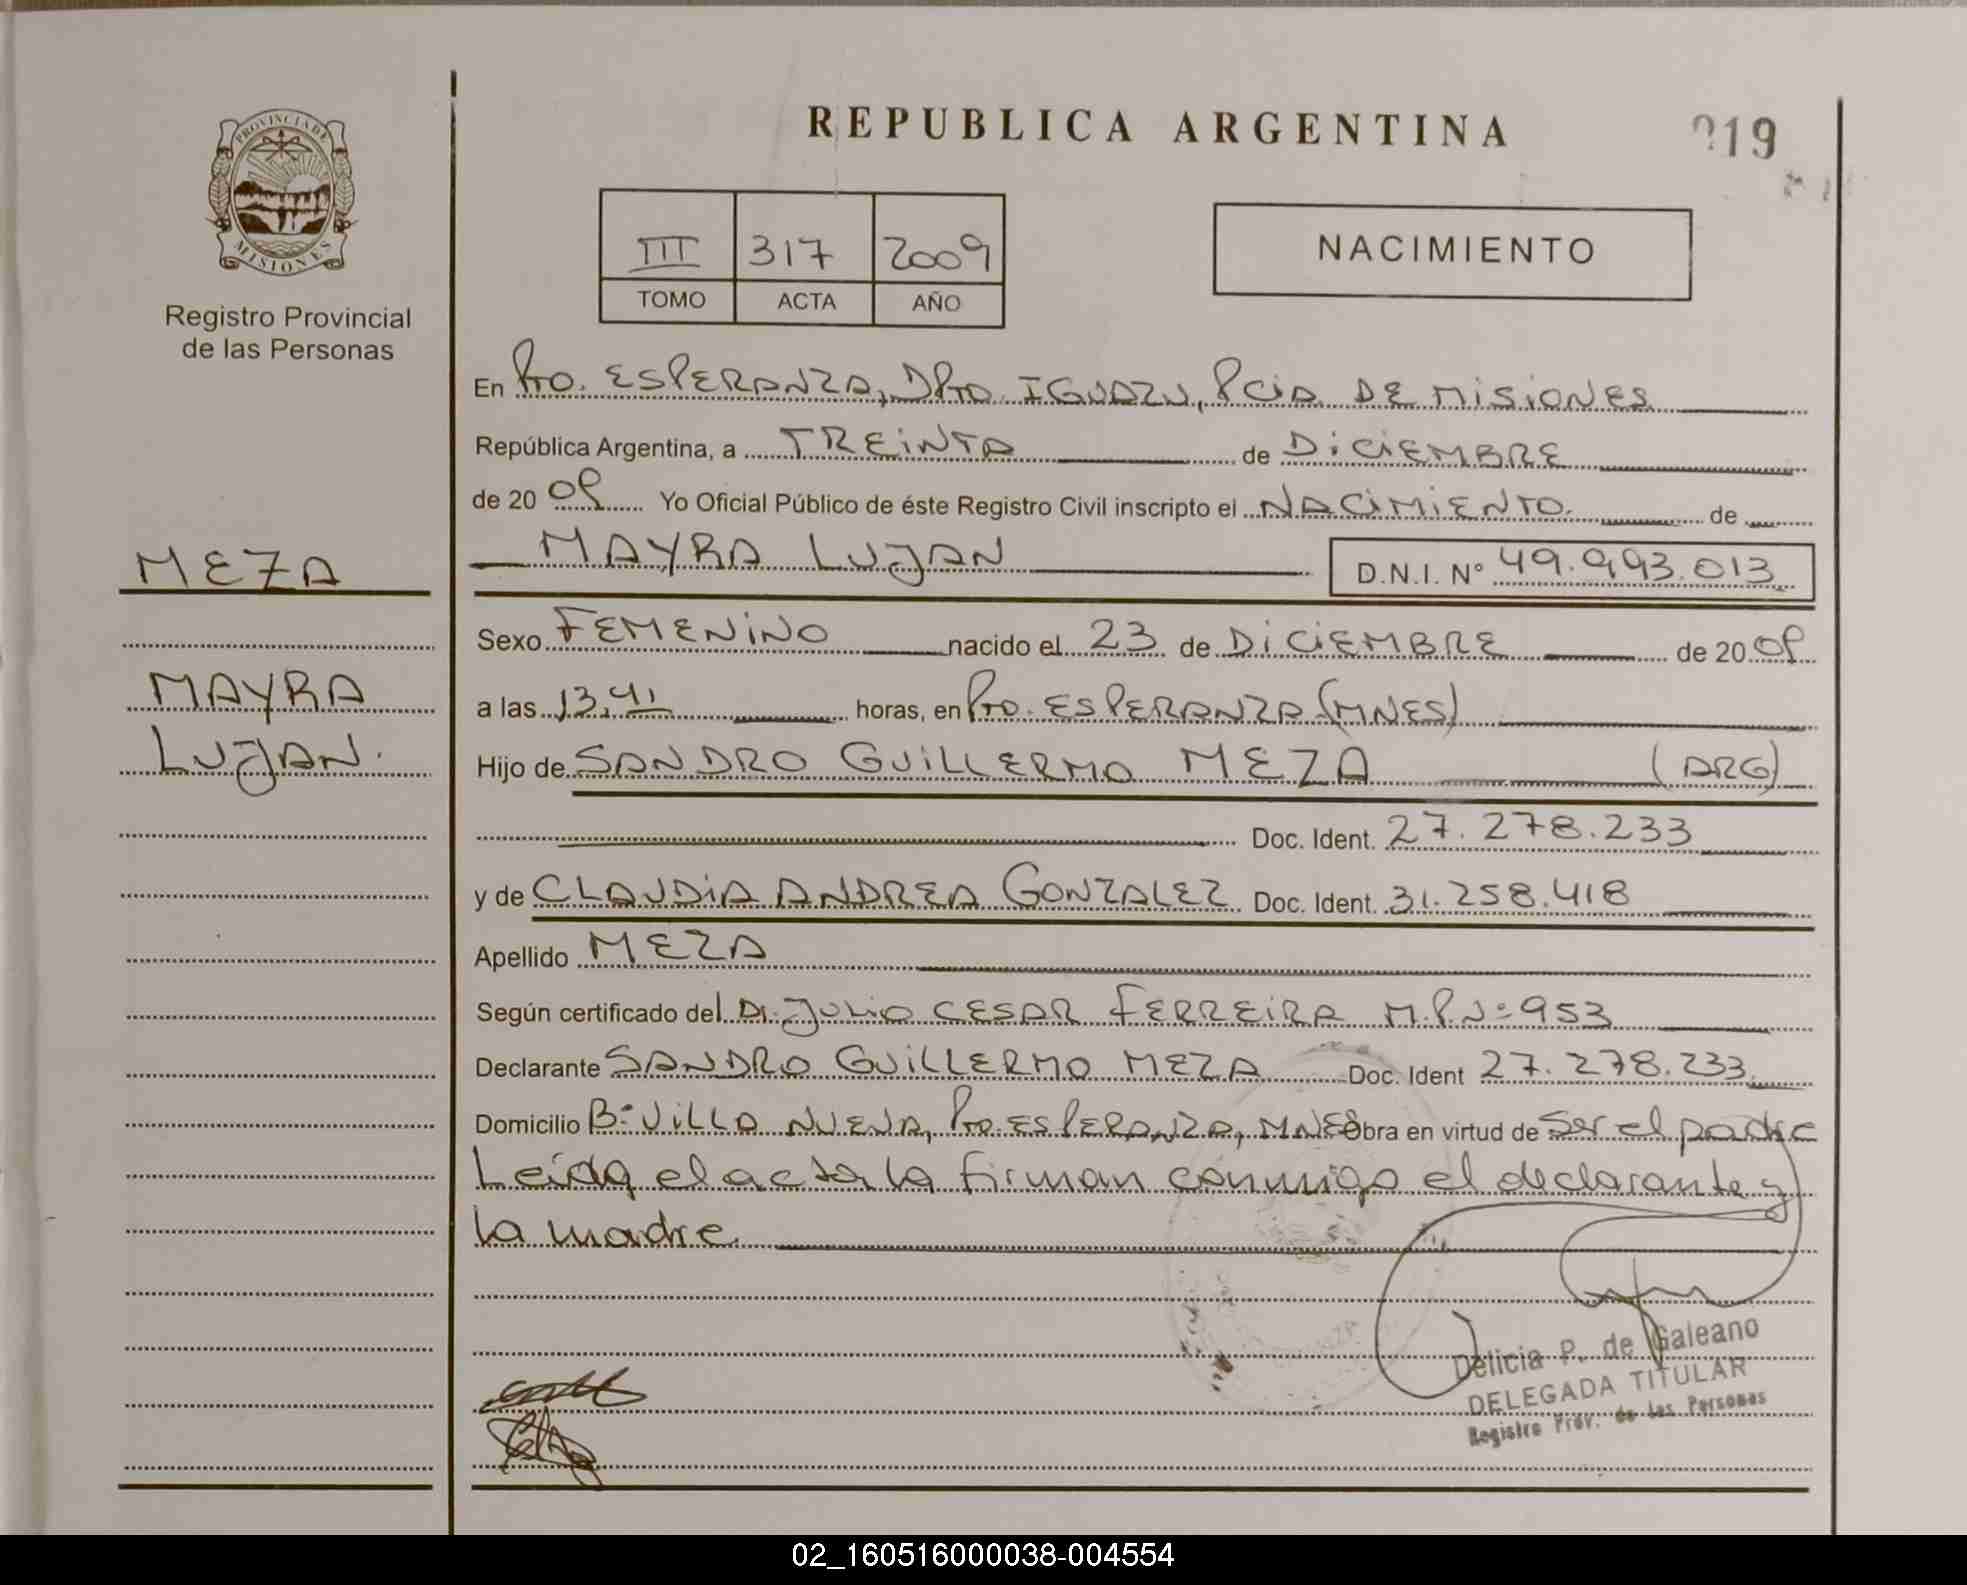 REPUBLICA ARGENTINA
219
PROVINCIA DE
MISIONES
Registro Provincial
de las Personas
III 317 2009
TOMO ACTA AÑO
NACIMIENTO
En Pto. ESPERANZA, DPto IGUAZU, PCIA DE MISIONES
República Argentina, a TREINTA de DICIEMBRE
de 20 09 Yo Oficial Público de éste Registro Civil inscripto el NACIMIENTO de
MEZA
MAYRA LUJAN
D.N.I. N° 49.993.013
Sexo FEMENINO nacido el 23 de DICIEMBRE de 20 09
MAYRA
a las 13,41 horas, en Pto. ESPERANZA (MNES)
LUJAN.
Hijo de SANDRO GUILLERMO MEZA (ARG)
Doc. Ident. 27.278.233
y de CLAUDIA ANDREA GONZALEZ Doc. Ident. 31.258.418
Apellido MEZA
Según certificado del Dr. JULIO CESAR FERREIRA M.P.Nº 953
Declarante SANDRO GUILLERMO MEZA Doc. Ident 27.278.233
Domicilio Bº VILLA NUEVA, Pto. ESPERANZA, MNES Obra en virtud de ser el padre
Leida el acta la firman conmigo el declarante y
la madre
Delicia P. de Galeano
DELEGADA TITULAR
Registro Prov. de las Personas
02_160516000038-004554